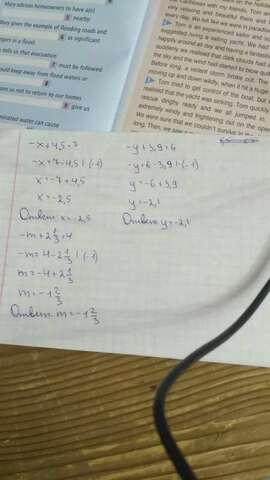 Mary advises homeowners to have anti
5 nearby.
Mary gives the example of flooding roads and
6 as significant
dangers in a flood.
tells us that evacuation
7 must be followed
could keep away from flood waters or
8
as so not to return to our homes
9 give us
contaminated water can cause
Caribbean with my family. Tom and
very relaxing and beautiful there and
every day. We felt like we were in paradise
Tom is an experienced sailor and
suggested hiring a sailing yacht. We had
suddenly we realised that dark clouds had
the sky and the wind had started to blow
Before long, a violent storm broke out. The
moving up and down wildly, when it hit a huge
Tom tried to get control of the boat, but
realised that the yacht was sinking. Tom quickly
rescue dinghy ready and we all jumped in.
very windy and frightening out on the open
We were sure that we wouldn't survive
-x+4,5=7
-x=7-4,5 | (-1)
x=-7+4,5
x=-2,5
Ответ: x=-2,5
-m+2 1/3=4
-m=4-2 1/3 | (-1)
m=-4+2 1/3
m=-1 2/3
Ответ: m=-1 2/3
-y+3,9=6
-y=6-3,9 | (-1)
y=-6+3,9
y=-2,1
Ответ: y=-2,1